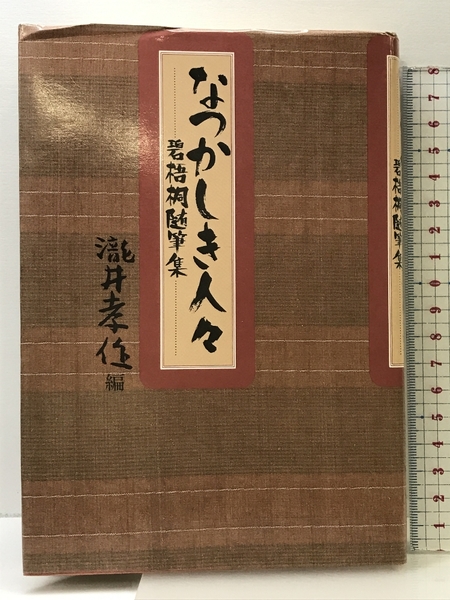 なつかしき人々
碧梧桐随筆集
瀧井孝作編
碧梧桐随筆集
8
7
6
5
4
3
2
1
0
9
8
7
6
5
4
3
2
1